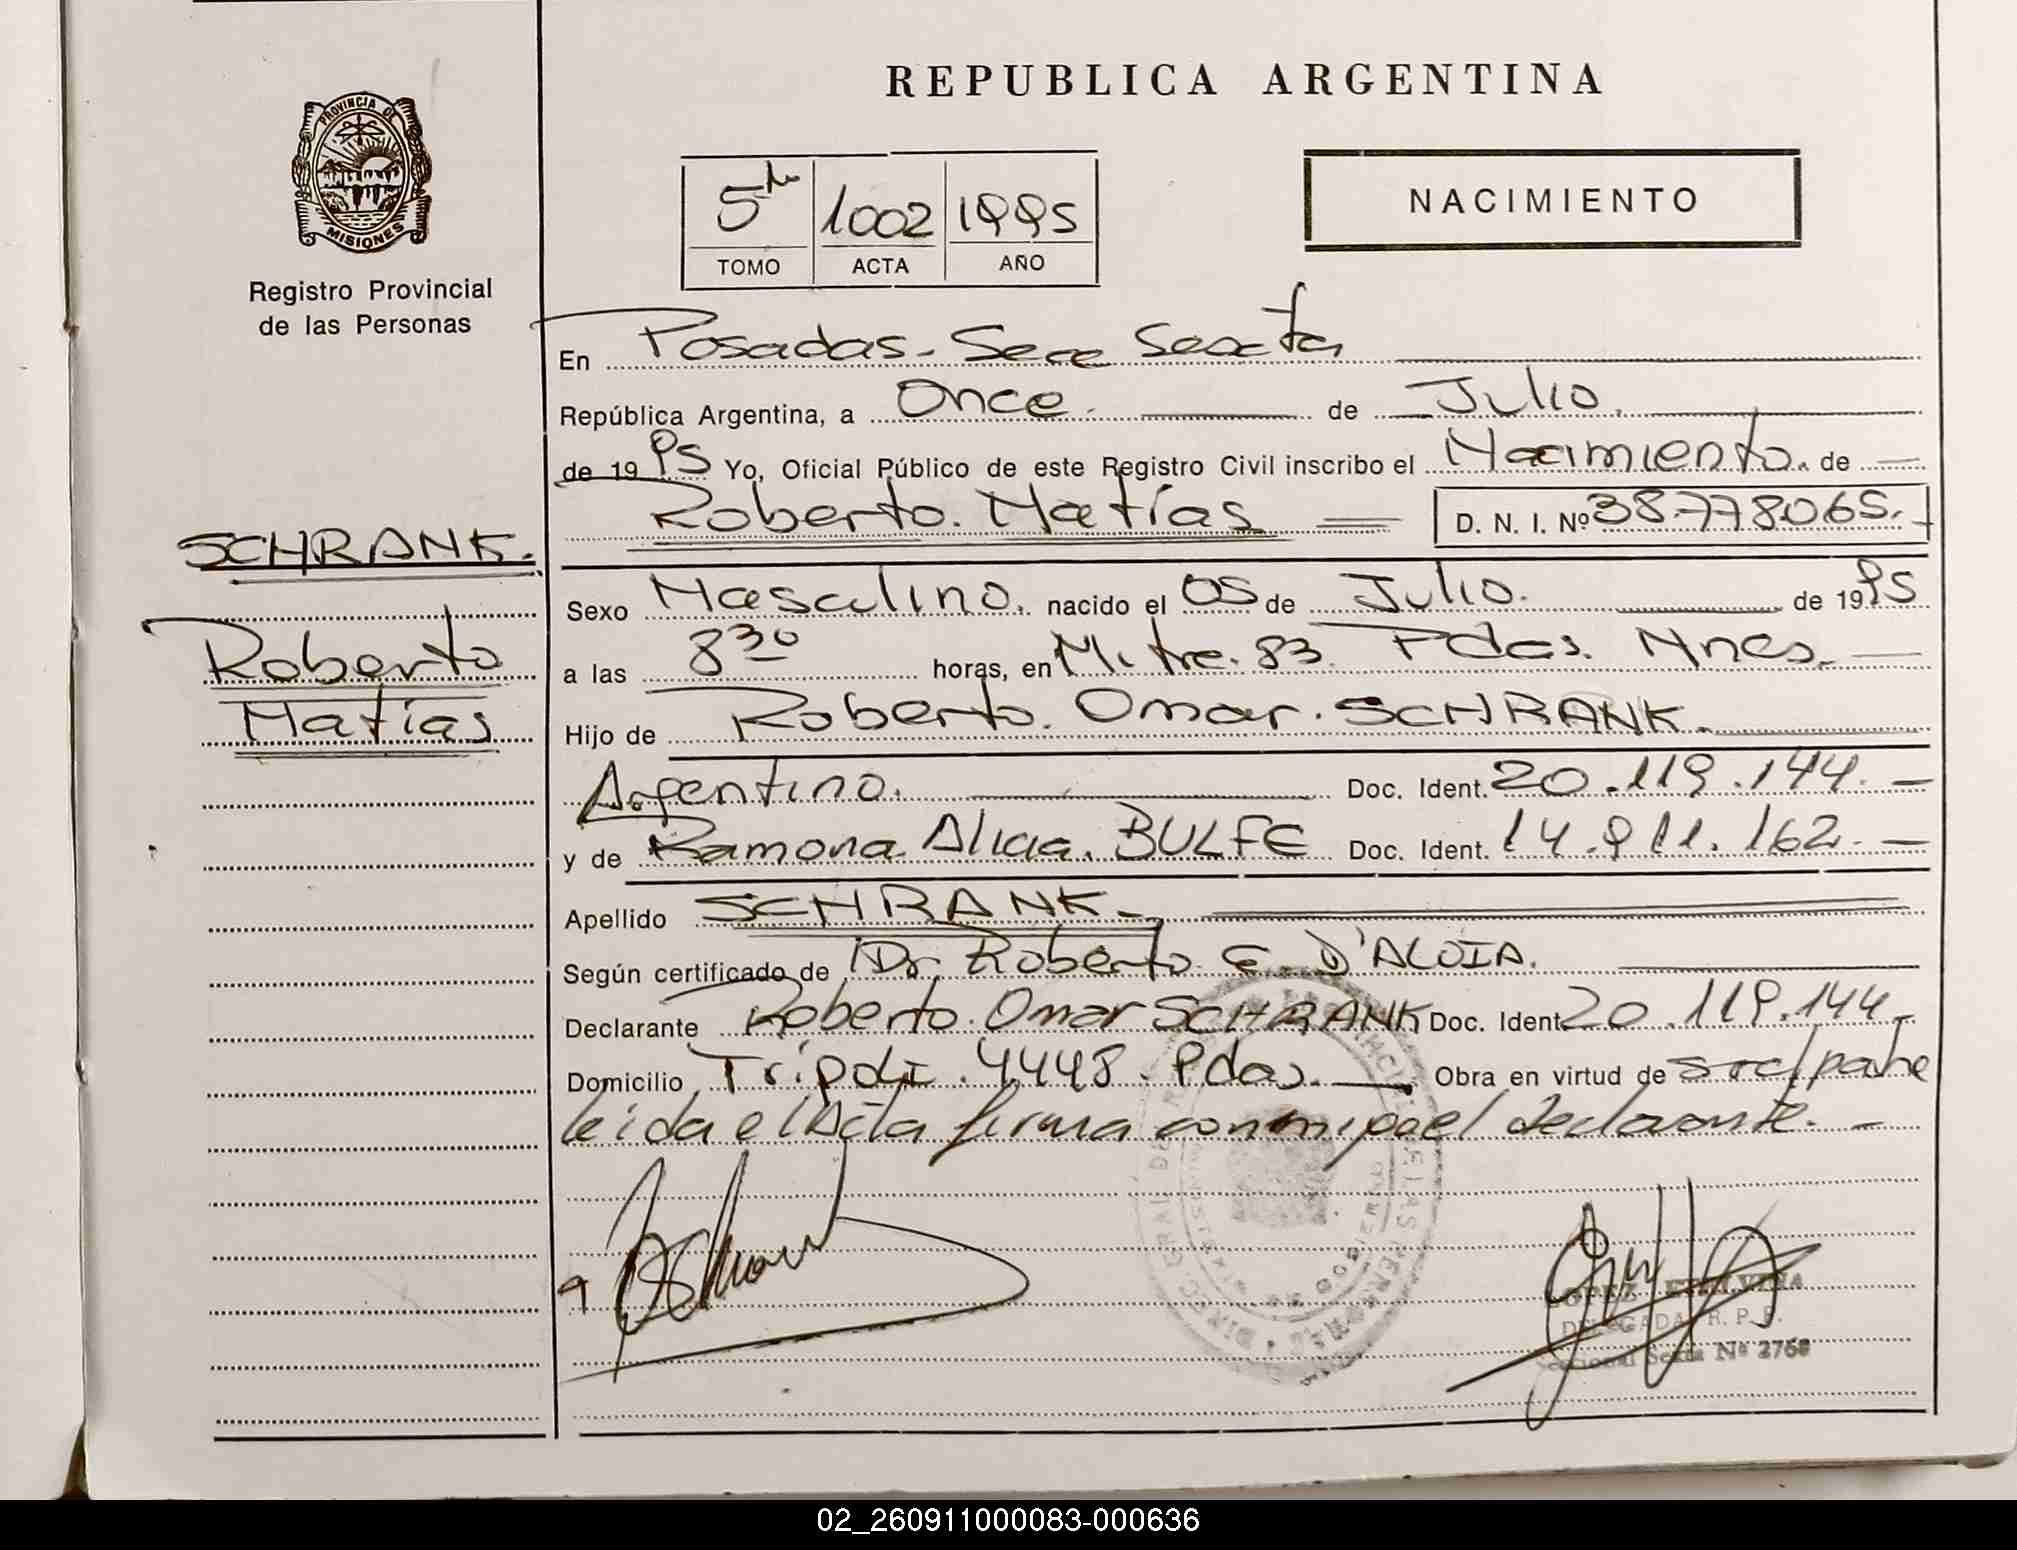 REPUBLICA ARGENTINA
PROVINCIA DE
MISIONES
Registro Provincial
de las Personas
NACIMIENTO
5to 1002 1995
TOMO ACTA AÑO
En Posadas. Secc Sexta
República Argentina, a Once. de Julio.
de 19 95 Yo, Oficial Público de este Registro Civil inscribo el Nacimiento. de
Roberto. Matías D. N. I. Nº 38778065.
SCHRANK.
Roberto
Matías
Sexo Masculino. nacido el 05 de Julio. de 19 95
a las 8 30 horas, en Mitre. 83. Pdas. Mnes.
Hijo de Roberto. Omar. SCHRANK.
Argentino. Doc. Ident. 20.119.144.
y de Ramona Alicia. BULFE Doc. Ident. 14.911.162.
Apellido SCHRANK.
Según certificado de Dr. Roberto E. D'ALOIA.
Declarante Roberto. Omar SCHRANK Doc. Ident. 20.119.144
Domicilio Trípoli. 4448. Pdas. Obra en virtud de
leída el Acta firma conmigo el declarante.
LOPEZ ETELVINA
DELEGADA R. P. P.
Seccional Sexta Nº 2768
02_260911000083-000636